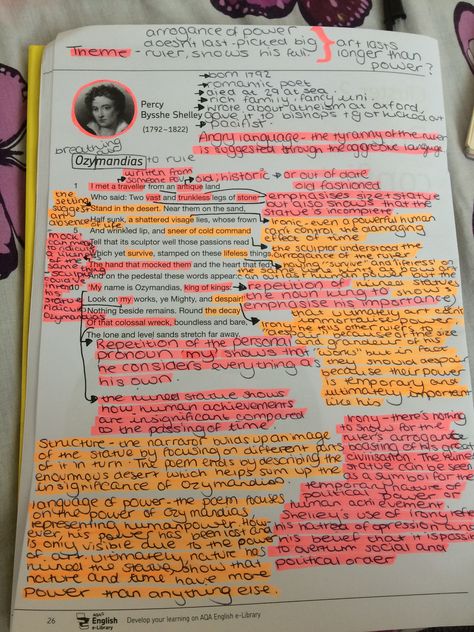 arrogance of power
doesn't last - picked big
Theme - ruler, shows his fall
art lasts
longer than
power?
Percy
Bysshe Shelley
(1792–1822)
born 1792
romantic poet
died @ 29 at sea.
rich family, fancy uni.
wrote about atheism at oxford,
gave it to bishops + got kicked out
pacifist.
Angry language - the tyranny of the ruler
is suggested through the aggressive language
breathing
Ozymandias
to rule
written from
someone POV
old, historic
or out of date
old fashioned
1
I met a traveller from an antique land
Who said: Two vast and trunkless legs of stone
Stand in the desert. Near them on the sand,
Half sunk, a shattered visage lies, whose frown
5
And wrinkled lip, and sneer of cold command
Tell that its sculptor well those passions read
Which yet survive, stamped on these lifeless things,
The hand that mocked them and the heart that fed.
And on the pedestal these words appear:
10
'My name is Ozymandias, king of kings:
Look on my works, ye Mighty, and despair!'
Nothing beside remains. Round the decay
Of that colossal wreck, boundless and bare,
The lone and level sands stretch far away.
the
setting
suggests
absence of life
emphasises size + stature
but also shows that the
statue is incomplete
Ironic - even a powerful human
can't control the damaging
effect of time
the sculptor understood the
arrogance of the ruler
"survive" and "life"
repetition
emphasise his importance
Repetition of the personal
pronoun 'my' shows that
he considers everything as
his own.
the ruined statue shows
how human achievements
are insignificant compared
to the passing of time.
because of the size
and grandeur of his
"works" but in fact
they should despair
because their power
is temporary and
ultimately unimportant
like his
Structure - the narrator builds up an image
of the statue by focusing on different parts
of it in turn. The poem ends by describing the
enormous desert which helps sum up the
insignificance of Ozymandias
Language of power - the poem focuses
on the power of Ozymandias
representing human power. How
ever, his power has been lost and
is only visible due to the power
of art. ultimately nature has
ruined the statue, show that
nature and time have more
power than anything else.
Irony - there's nothing
to show for the
ruler's arrogant
boasting of his great
civilisation. The ruined
statue can be seen
as a symbol for the
temporary nature of
political power
human achievement.
Shelley's use of irony reflects
his hatred of oppression and
his belief that it is possible
to overturn social and
political order
26
AQA
English
e-Library
Develop your learning on AQA English e-Library